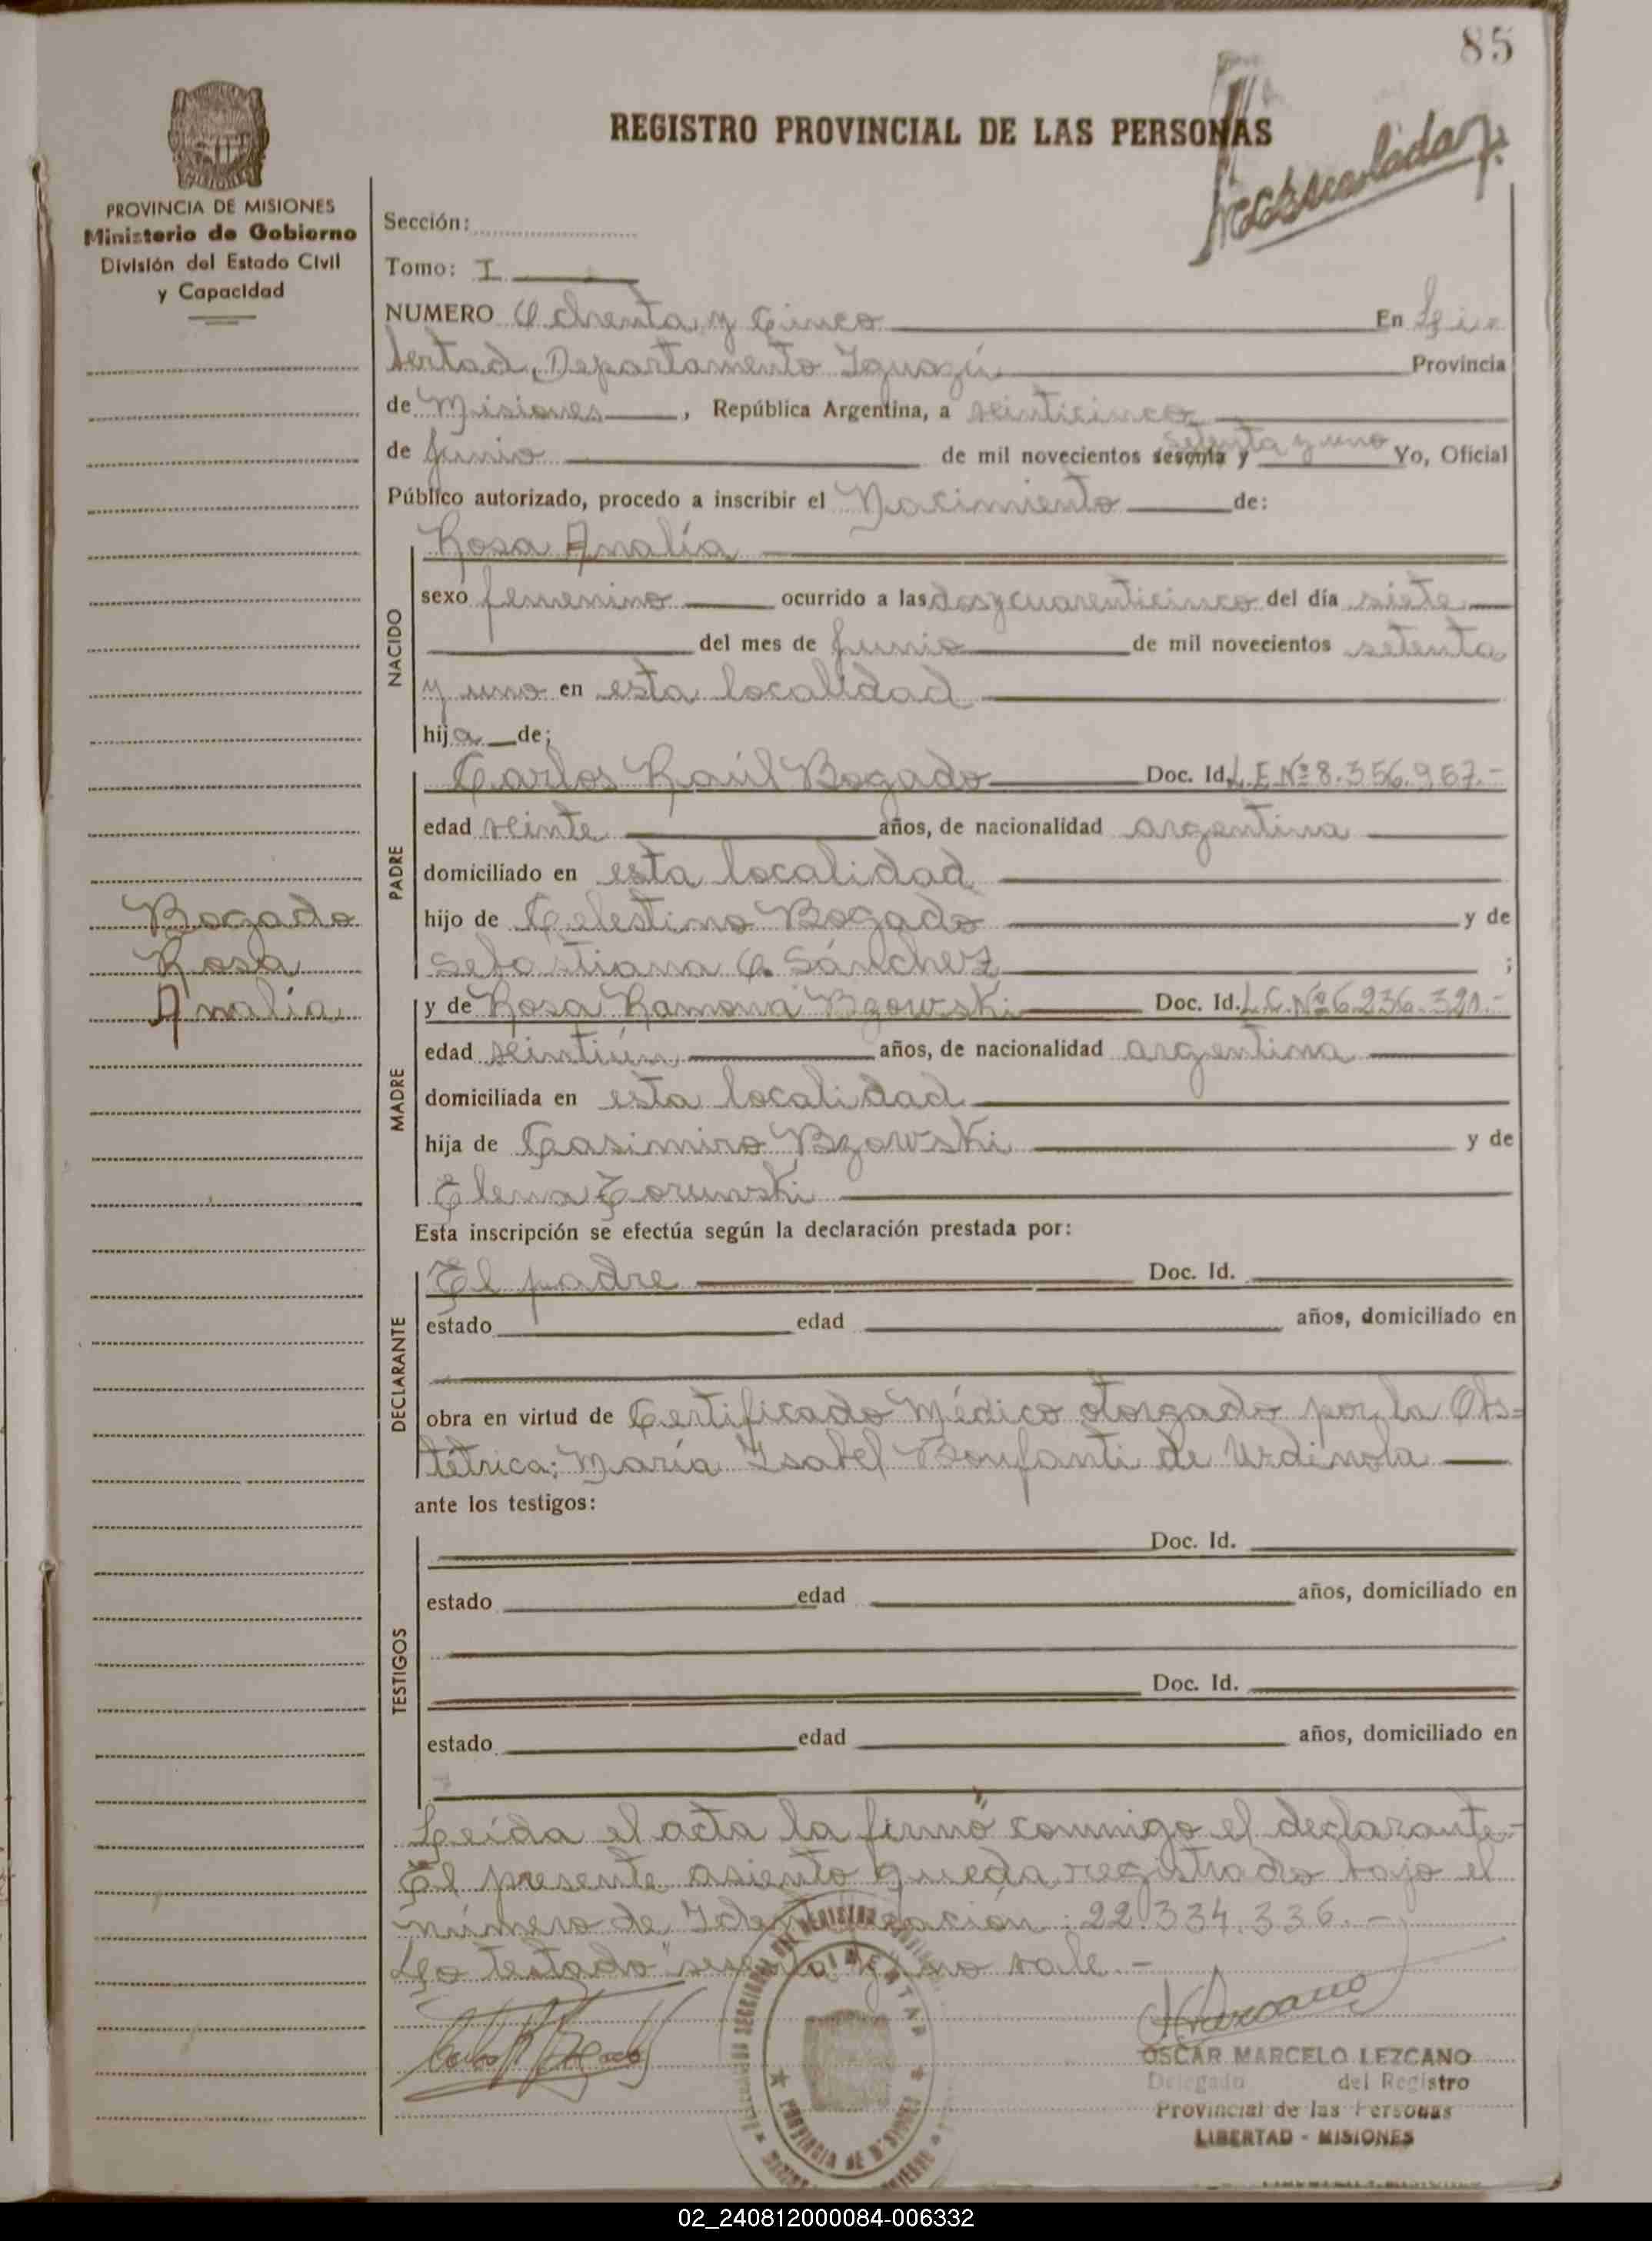 85
REGISTRO PROVINCIAL DE LAS PERSONAS
PROVINCIA DE MISIONES
Ministerio de Gobierno
División del Estado Civil
y Capacidad
Sección:
Tomo: I
NUMERO Ochenta y Cinco En Li-
bertad, Departamento Iguazú Provincia
de Misiones, República Argentina, a veinticinco
de junio de mil novecientos sesenta y setenta y uno Yo, Oficial
Público autorizado, procedo a inscribir el Nacimiento de:
NACIDO
Rosa Analía
sexo femenino ocurrido a las dos y cuarenticinco del día siete
del mes de junio de mil novecientos setenta
y uno en esta localidad
hija de;
PADRE
Carlos Raúl Bogado Doc. Id. L.E.Nº 8.356.967.-
edad veinte años, de nacionalidad argentina
domiciliado en esta localidad
hijo de Celestino Bogado y de
Sebastiana C. Sánchez ;
Bogado
Rosa
Analia
MADRE
y de Rosa Ramona Bzowski Doc. Id. L.C.Nº 6.236.320.-
edad veintiún años, de nacionalidad argentina
domiciliada en esta localidad
hija de Casimiro Bzowski y de
Elena Zorunski
Esta inscripción se efectúa según la declaración prestada por:
DECLARANTE
El padre Doc. Id.
estado edad años, domiciliado en
obra en virtud de Certificado Médico otorgado por la Obs=
tétrica; María Isabel Bonfanti de Urdinola
ante los testigos:
TESTIGOS
Doc. Id.
estado edad años, domiciliado en
Doc. Id.
estado edad años, domiciliado en
Leída el acta la firmó conmigo el declarante.-
El presente asiento queda registrado bajo el
número de Identificación: 22.334.336.-
Lo testado "sesenta y" no vale.-
OSCAR MARCELO LEZCANO
Delegado del Registro
Provincial de las Personas
LIBERTAD - MISIONES
LIBERTAD
PROVINCIA DE MISIONES
02_240812000084-006332